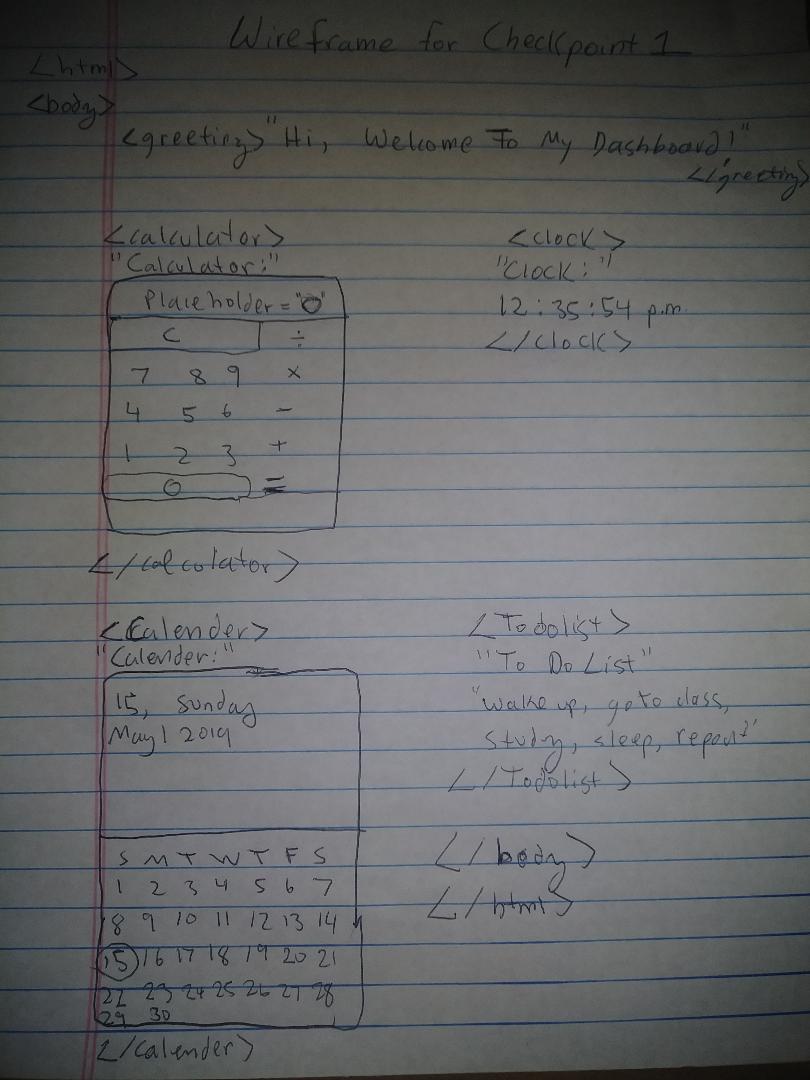 Wireframe for Checkpoint 1
<html>
<body>
<greeting> "Hi, Welcome To My Dashboard!"
</greeting>
<calculator>
"Calculator:"
Placeholder = "0"
C ÷
7 8 9 ×
4 5 6 -
1 2 3 +
0 =
</calculator>
<clock>
"Clock:"
12:35:54 p.m.
</clock>
<Calender>
"Calender:"
15, Sunday
May 1 2019
S M T W T F S
1 2 3 4 5 6 7
8 9 10 11 12 13 14
15 16 17 18 19 20 21
22 23 24 25 26 27 28
29 30
</calender>
<Todolist>
"To Do List"
"wake up, go to class,
study, sleep, repeat"
</Todolist>
</body>
</html>